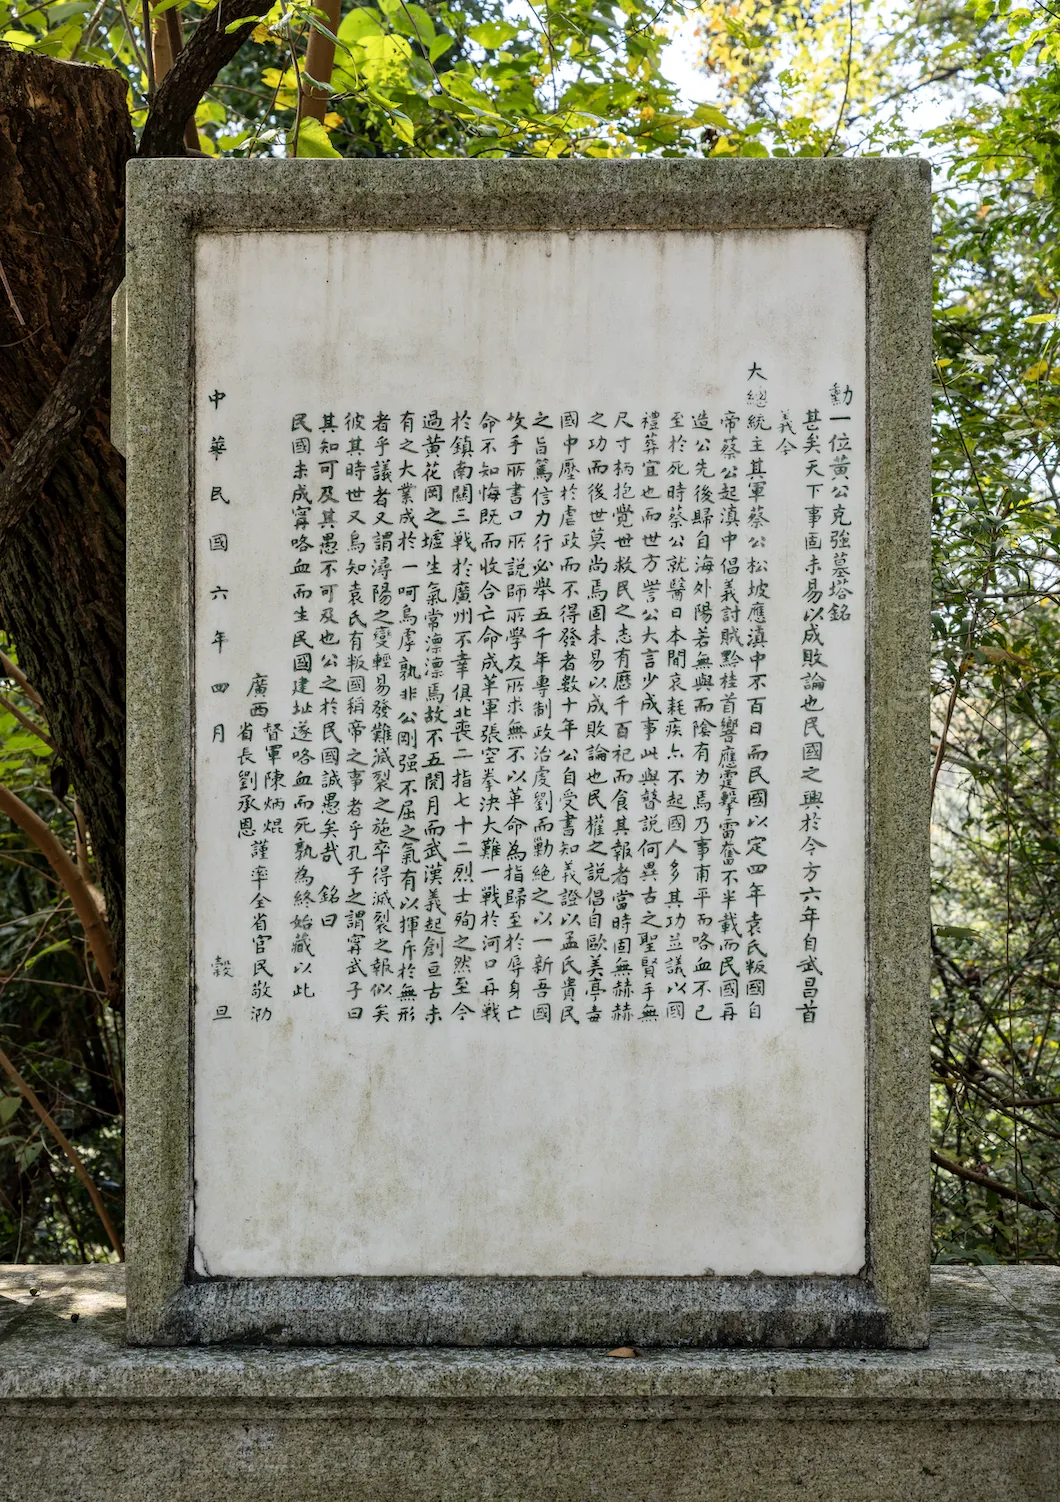 勳一位黃公克強墓塔銘
甚矣天下事固未易以成敗論也民國之興於今方六年自武昌首
義今
大總統主其軍蔡公松坡應滇中不百日而民國以定四年袁氏叛國自
帝蔡公起滇中倡義討賊黔桂首響應霆擊雷奮不半載而民國再
造公先後歸自海外陽若無與而陰有为焉乃事甫平而咯血不已
至於死時蔡公就醫日本聞哀耗疾亦不起國人多其功並議以國
禮葬宜也而世方訾公大言少成事此與瞽説何異古之聖賢手無
尺寸柄抱覺世救民之志有歷千百祀而食其報者當時固無赫赫
之功而後世莫尚焉固未易以成敗論也民權之説倡自歐美亭臺
國中壓於虐政而不得發者數十年公自受書知義證以孟氏貴民
之旨篤信力行必舉五千年專制政治虔劉而勦絶之以一新吾國
故手所書口所説師所學友所求無不以革命為指歸至於辱身亡
命不知悔既而收合亡命成革軍張空拳決大難一戰於河口再戰
於鎮南關三戰於廣州不幸俱北喪二指七十二烈士殉之然至今
過黃花岡之墟生氣常凛凛焉故不五閱月而武漢義起創亘古未
有之大業成於一呵烏虖孰非公剛强不屈之氣有以揮斥於無形
者乎議者又謂潯陽之變輕易發難滅裂之施卒得滅裂之報似矣
彼其時世又烏知袁氏有叛國稱帝之事者乎孔子之謂甯武子曰
其知可及其愚不可及也公之於民國誠愚矣哉　銘曰
民國未成甯咯血而生民國建址遂咯血而死孰為終始藏以此
廣西督軍陳炳焜
省長劉承恩謹率全省官民敬泐
中華民國六年四月　穀旦